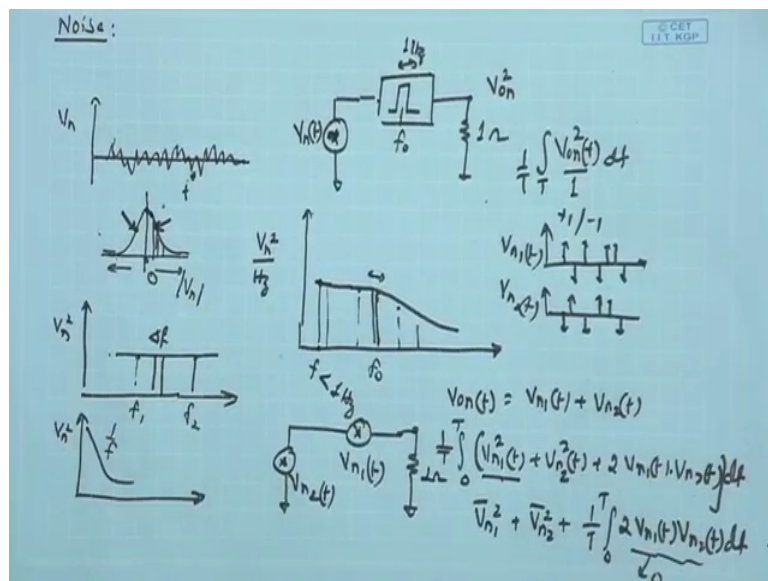 Noise:
© CET
I.I.T. KGP
Vn
t
0
|Vn|
Vn²
Δf
f₁
f₂
Vn²
1/f
1Hz
Vn(t)
f₀
Von²
1Ω
1/T ∫_T Von²(t)/1 dt
Vn²/Hz
f < 1Hz
f₀
+1/-1
Vn₁(t)
Vn₂(t)
Von(t) = Vn₁(t) + Vn₂(t)
Vn₂(t)
Vn₁(t)
1Ω
1/T ∫₀^T (Vn₁²(t) + Vn₂²(t) + 2 Vn₁(t).Vn₂(t)) dt
V̅n₁² + V̅n₂² + 1/T ∫₀^T 2 Vn₁(t) Vn₂(t) dt
0